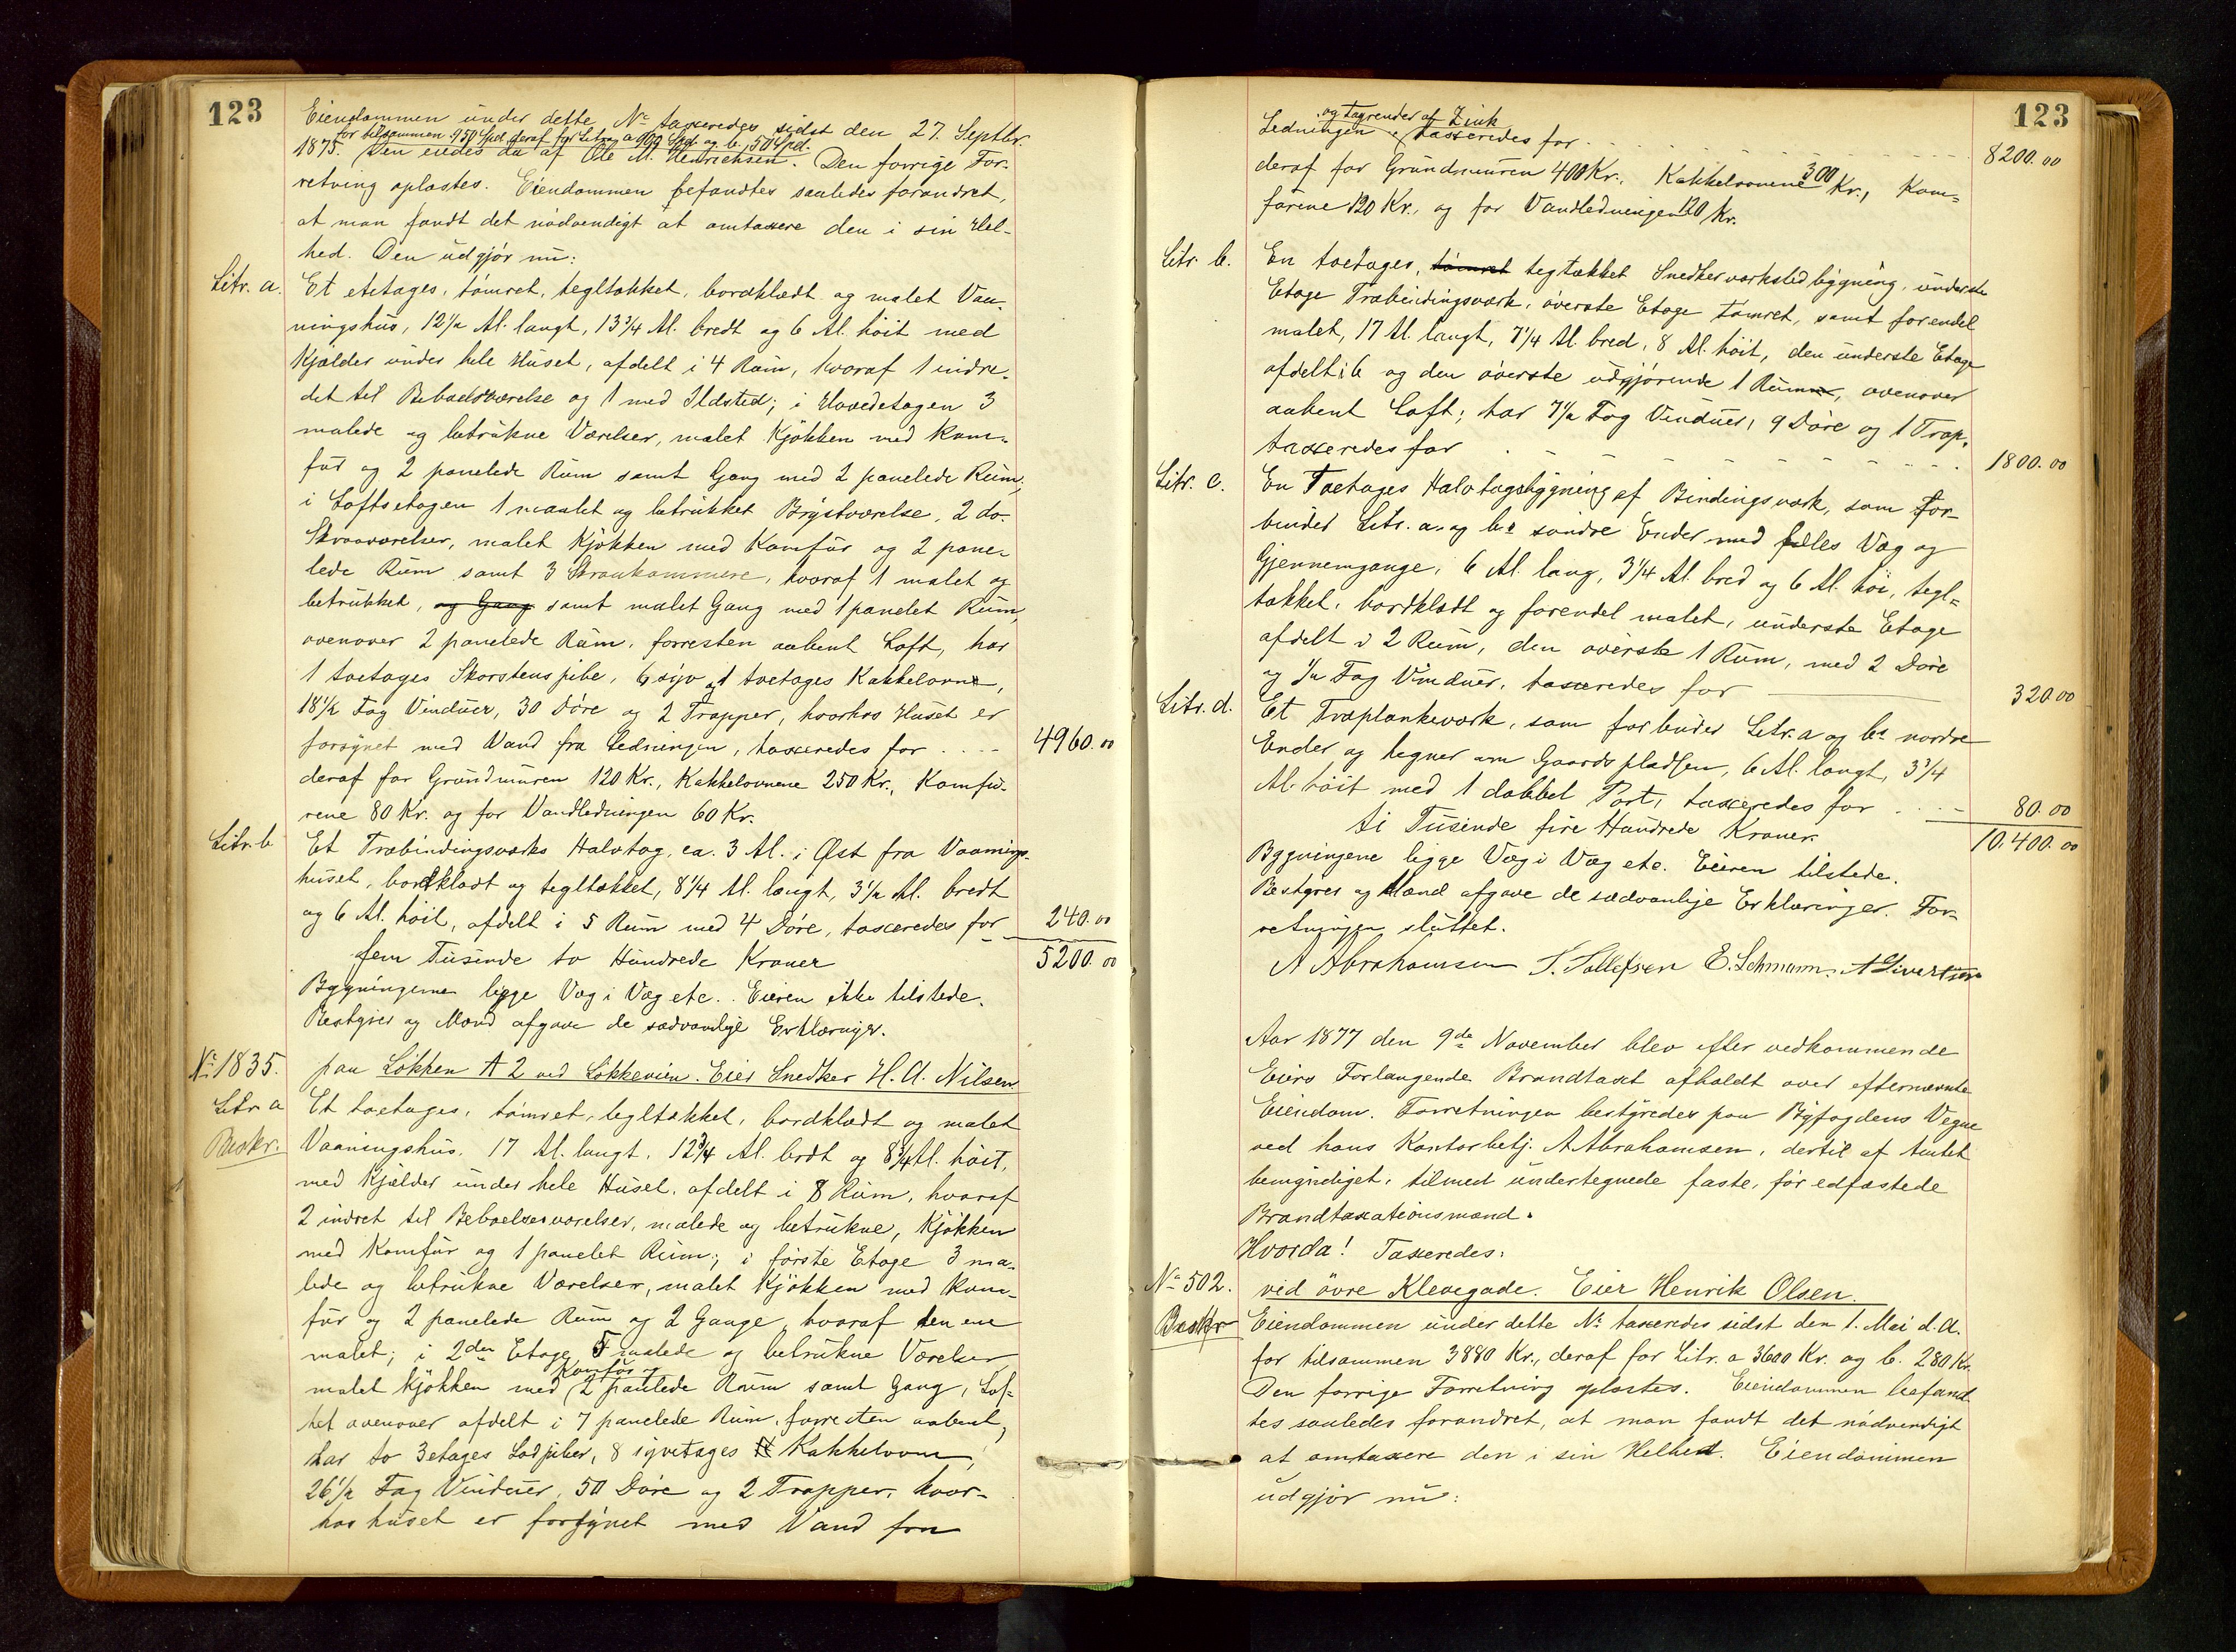 123
Eiendommen under dette No taxeredes sidst den 27. Septbr.
for tilsammen 950 Spd. deraf for Litra a 900 Spd. og b. 50 Spd.
1875. Den eiedes da af Ole M. Henrichsen. Den forrige For-
retning oplæstes. Eiendommen befandtes saaledes forandret,
at man fandt det nødvendigt at omtaxere den i sin Hel-
hed. Den udgjør nu:
Litr. a. Et etetages, tømret, tegltækket, bordklædt og malet Vaa-
ningshus, 12 1/2 Al. langt, 13 3/4 Al. bredt og 6 Al. høit med
Kjælder under hele Huset, afdelt i 4 Rum, hvoraf 1 indre-
det til Beboelsværelse og 1 med Ildsted; i Hovedetagen 3
malede og betrukne Værelser, malet Kjøkken med Kom-
fur og 2 panelede Rum samt Gang med 2 panelede Rum,
i Loftsetagen 1 maalet og betrukket Brystværelse, 2 do.
Skraaværelser, malet Kjøkken med Komfur og 2 pane-
lede Rum samt 3 Skraakammere, hvoraf 1 malet og
betrukket, og Gang samt malet Gang med 1 panelet Rum,
ovenover 2 panelede Rum, forresten aabent Loft, har
1 toetages Skorstenspibe, 6 og 1 toetages Kakkelovne,
18 1/2 Fag Vinduer, 30 Døre og 2 Trapper, hvorhos Huset er
forsynet med Vand fra Ledningen, taxeredes for .... 4960.00
deraf for Grundmuren 120 Kr., Kakkelovnene 250 Kr., Komfu-
rene 80 Kr. og for Vandledningen 60 Kr.
Litr. b Et Træbindingsværks Halvtag, ca. 3 Al. i Øst fra Vaanings-
huset, bordklædt og tegltækket, 8 1/4 Al. langt, 3 1/2 Al. bredt
og 6 Al. høit, afdelt i 5 Rum med 4 Døre, taxeredes for 240.00
fem Tusinde to Hundrede Kroner 5200.00
Bygningerne ligge Væg i Væg etc. Eieren ikke tilstede.
Bestyrer og Mænd afgave de sædvanlige Erklæringer.
No 1835. paa Løkken A 2 ved Løkkeveien. Eier Snedker H. A. Nilsen
Litr. a Et toetages, tømret, tegltækket, bordklædt og malet
Beskr. Vaaningshus, 17 Al. langt, 12 3/4 Al. bredt og 8 3/4 Al. høit,
med Kjælder under hele Huset, afdelt i 8 Rum, hvoraf
2 indret til Beboelsesværelser, malede og betrukne, Kjøkken
med Komfur og 1 panelet Rum; i første Etage 3 ma-
lede og betrukne Værelser, malet Kjøkken med Kom-
fur og 2 panelede Rum og 2 Gange, hvoraf den ene
malet; i 2den Etage 5 malede og betrukne Værelser
Komfur og
malet Kjøkken med 2 panlede Rum samt Gang, Lof-
tet ovenover afdelt i 7 panelede Rum, forresten aabent,
har to 3etages Lodpiber, 8 Kakkelovne,
26 1/2 Fag Vinduer, 50 Døre og 2 Trapper, hvor-
hos huset er forsynet med Vand fra
123
og tagrender af Zink
Ledningen, taxeredes for .... 8200.00
deraf for Grundmuren 400 Kr., Kakkelovnene 300 Kr., Kom-
furene 120 Kr., og for Vandledningen 120 Kr.
Litr. b. En toetages, tømret tegtækket Snedkerværkstedbygning, underste
Etage Træbindingsværk, øverste Etage tømret, samt forendel
malet, 17 Al. langt, 7 1/4 Al. bred, 8 Al. høit, den underste Etage
afdelt i 6 og den øverste udgjørende 1 Rum, ovenover
aabent Loft; har 7 1/2 Fag Vinduer, 9 Døre og 1 Trap.
taxeredes for .... 1800.00
Litr. c. En Toetages Halvtagsbygning af Bindingsværk, som for-
binder Litr. a. og bs søndre Ender med fælles Væg og
Gjennemgange, 6 Al. lang, 3 1/4 Al. bred og 6 Al. høi, tegl-
tækket, bordklædt og forendel malet, underste Etage
afdelt i 2 Rum, den øverste 1 Rum, med 2 Døre
og 1/2 Fag Vinduer, taxeredes for 320.00
Litr. d. Et Træplankeværk, som forbinder Litr. a og bs nordre
Ender og hegner om Gaardspladsen, 6 Al. langt, 3 3/4
Al. høit med 1 dobbel Port, taxeredes for .... 80.00
ti Tusinde fire Hundrede Kroner. 10.400.00
Bygningene ligge Væg i Væg etc. Eieren tilstede.
Bestyrer og Mænd afgave de sædvanlige Erklæringer. For-
retningen sluttet.
A Abrahamsen T. Tollefsen E. Lehmann. A Sivertsen
Aar 1877 den 9de November blev efter vedkommende
Eiers Forlangende Brandtaxt afholdt over efternævnte
Eiendom. Forretningen bestyredes paa Byfogdens Vegne
ved hans Kontorbetj. A Abrahamsen, dertil af Amtet
bemyndiget, tilmed undertegnede faste, før edfæstede
Brandtaxationsmænd.
Hvorda! Taxeredes:
No 502. ved øvre Klevegade. Eier Henrik Olsen.
Beskr Eiendommen under dette No taxeredes sidst den 1. Mai d. A.
for tilsammen 3880 Kr., deraf for Litr. a 3600 Kr. og b. 280 Kr.
Den forrige Forretning oplæstes. Eiendommen befand
tes saaledes forandret, at man fandt det nødvendigt
at omtaxere den i sin Helhed. Eiendommen
udgjør nu: